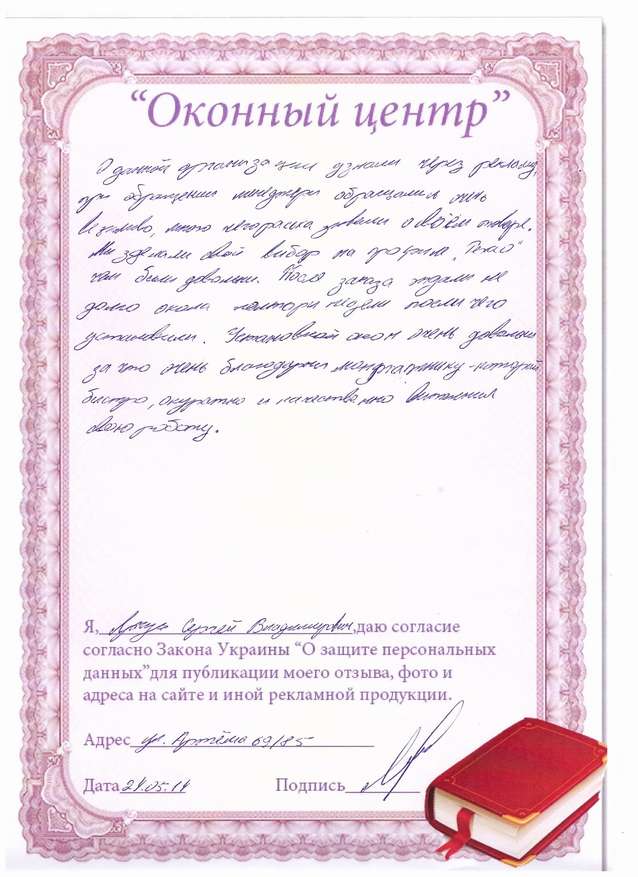 “Оконный центр”
О данной организации узнали через рекламу,
при обращении менеджери обращались очень
вежливо, много
Ми зделали свой вибор на фирме
чем били довольни. После заказа ждали не
долго окала полтори недели после чего
установили. Установкой окон очень довольни
за что очень благодарни монтажнику-который
бистро, окуратно и качественно виполнил
свою роботу.
Я, Сергей Владимирович,даю согласие
согласно Закона Украины “О защите персональных
данных”для публикации моего отзыва, фото и
адреса на сайте и иной рекламной продукции.
Адрес ул. Артёма 69/85
Дата 21.05.14 Подпись